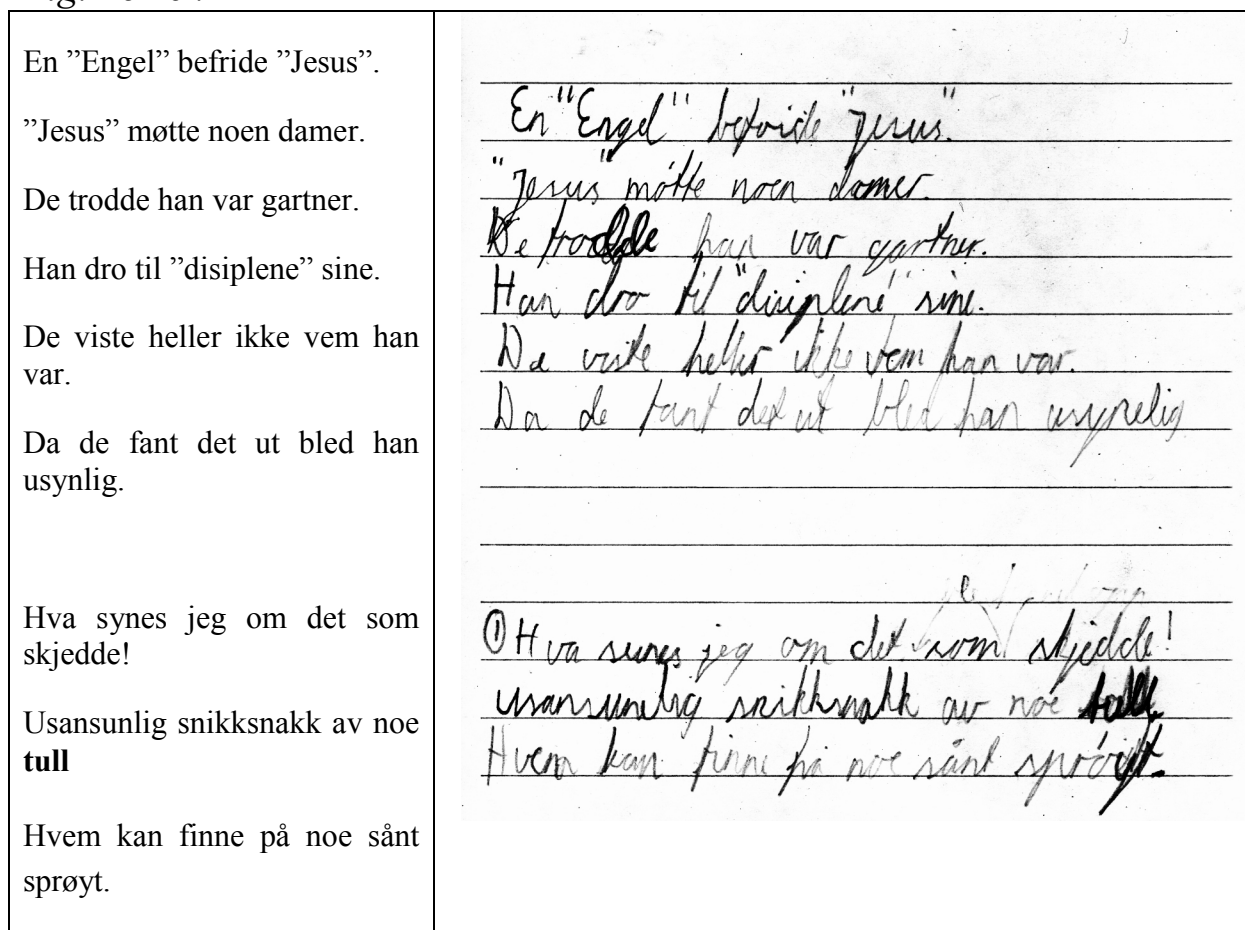 En ”Engel” befride ”Jesus”.
”Jesus” møtte noen damer.
De trodde han var gartner.
Han dro til ”disiplene” sine.
De viste heller ikke vem han
var.
Da de fant det ut bled han
usynlig.
Hva synes jeg om det som
skjedde!
Usansunlig snikksnakk av noe
tull
Hvem kan finne på noe sånt
sprøyt.
En "Engel" befride "Jesus".
"Jesus" møtte noen damer.
De trodde han var gartner.
Han dro til "disiplene" sine.
De viste heller ikke vem han var.
Da de fant det ut bled han usynelig
① Hva sunes jeg om det som skjedde!
usansunelig snikksnakk av noe tull
Hvem kan finne på noe sånt sprøyt.